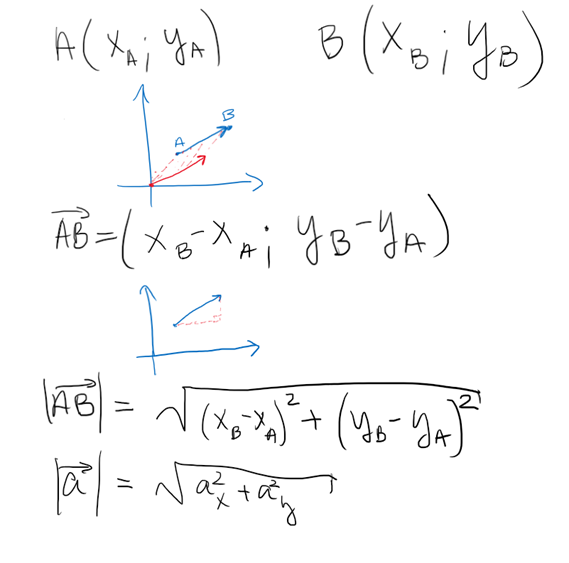 A(x_A; y_A) B(x_B; y_B)
A B
\overrightarrow{AB}=(x_B-x_A; y_B-y_A)
|\overrightarrow{AB}| = \sqrt{(x_B-x_A)^2+(y_B-y_A)^2}
|\overrightarrow{a}| = \sqrt{a_x^2+a_y^2}